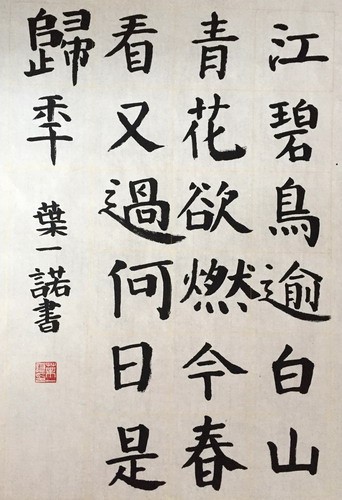 江碧鳥逾白山
青花欲燃今春
看又過何日是
歸季
葉一諾書